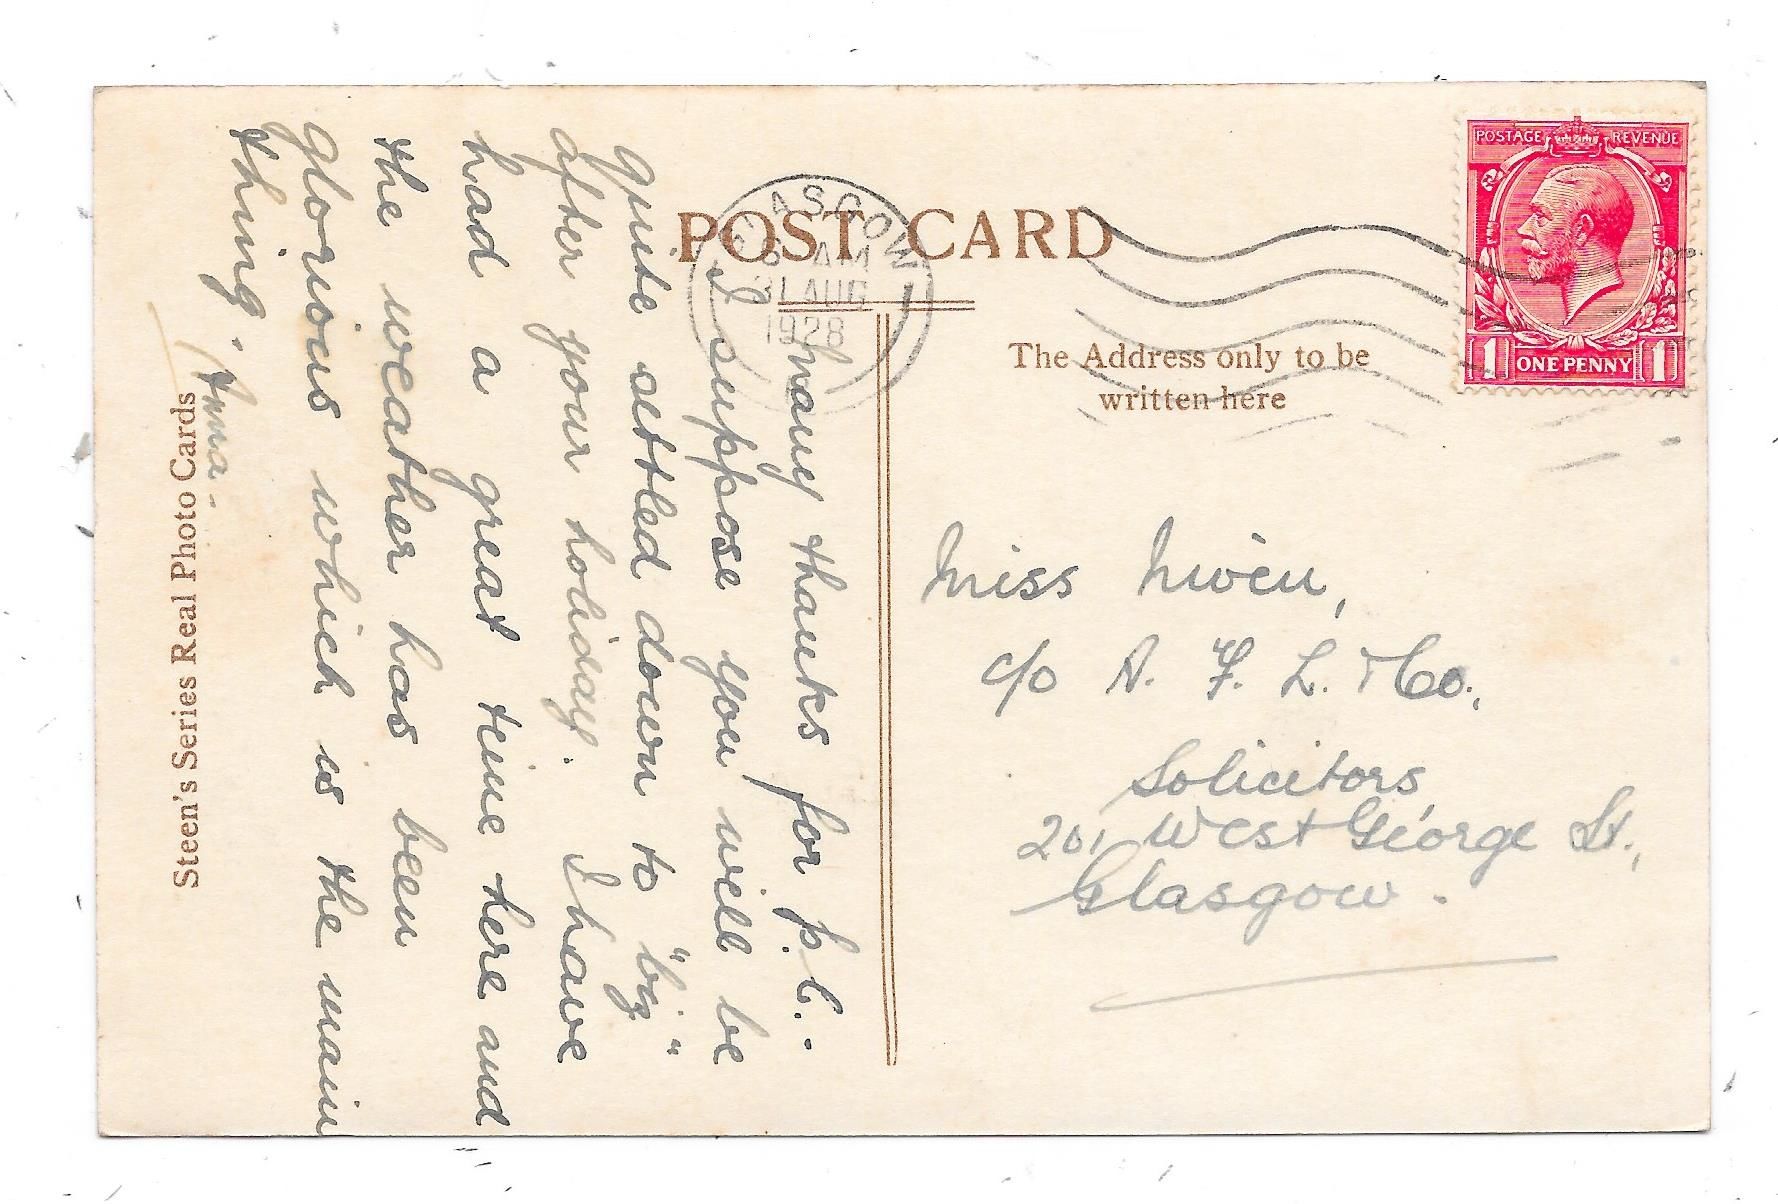 POST CARD
GLASGOW
AM
31 AUG
1928
POSTAGE REVENUE
1 ONE PENNY 1
The Address only to be
written here
Many thanks for p.c.-
I suppose you will be
quite settled down to "big"
after your holiday. I have
had a great time here and
the weather has been
glorious which is the main
thing. Anna.
Steen's Series Real Photo Cards
Miss Niven,
c/o A. F. L. & Co.,
Solicitors,
201 West George St.,
Glasgow.